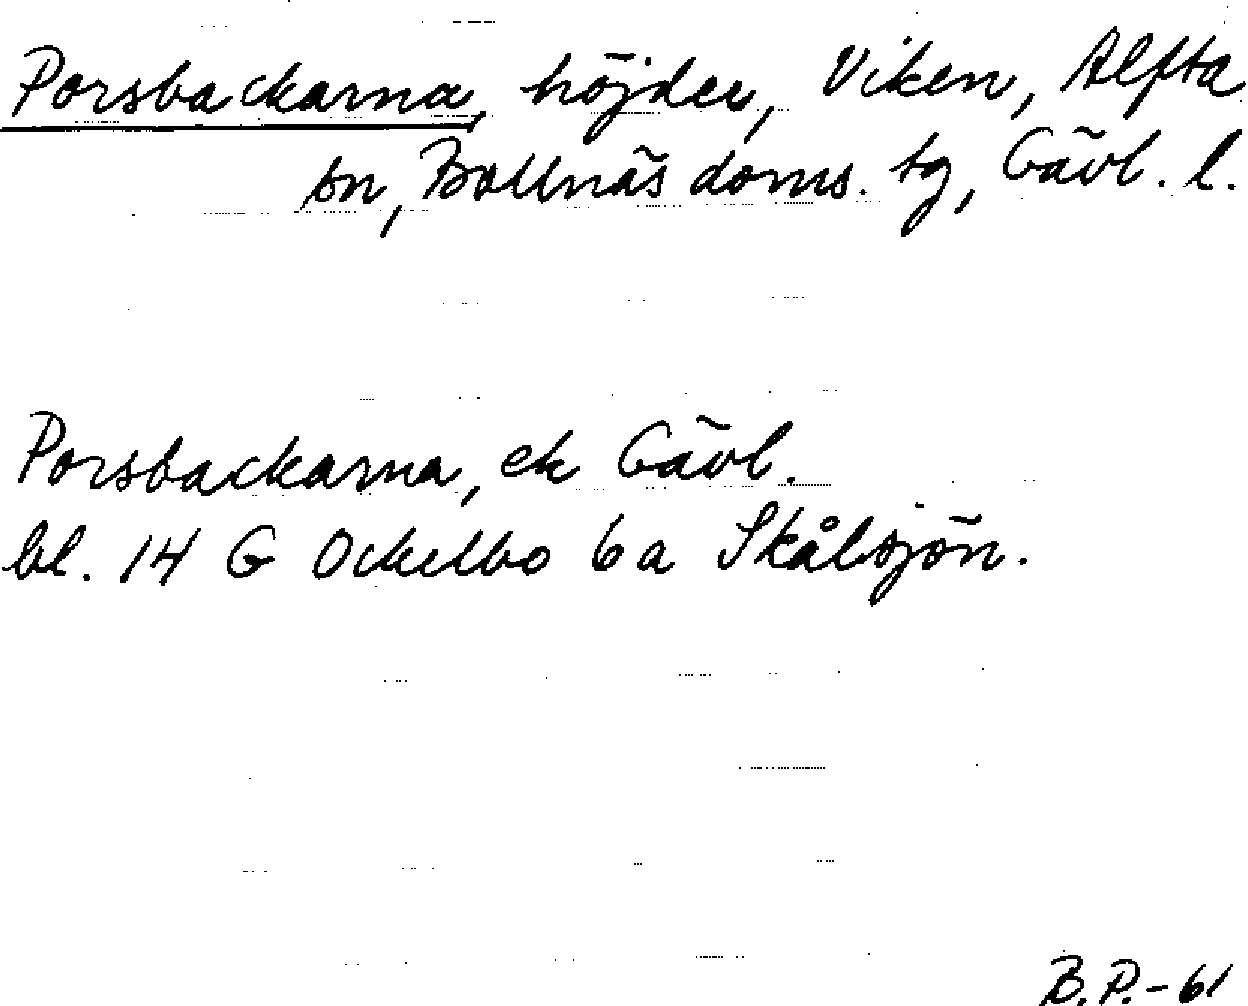 Porsbackarna, höjder, Viken, Alfta
sn, Bollnäs doms. tg, Gävl. l.
Porsbackarna, ek Gävl.
bl. 14 G Ockelbo 6a Skålsjön.
B.P.-61